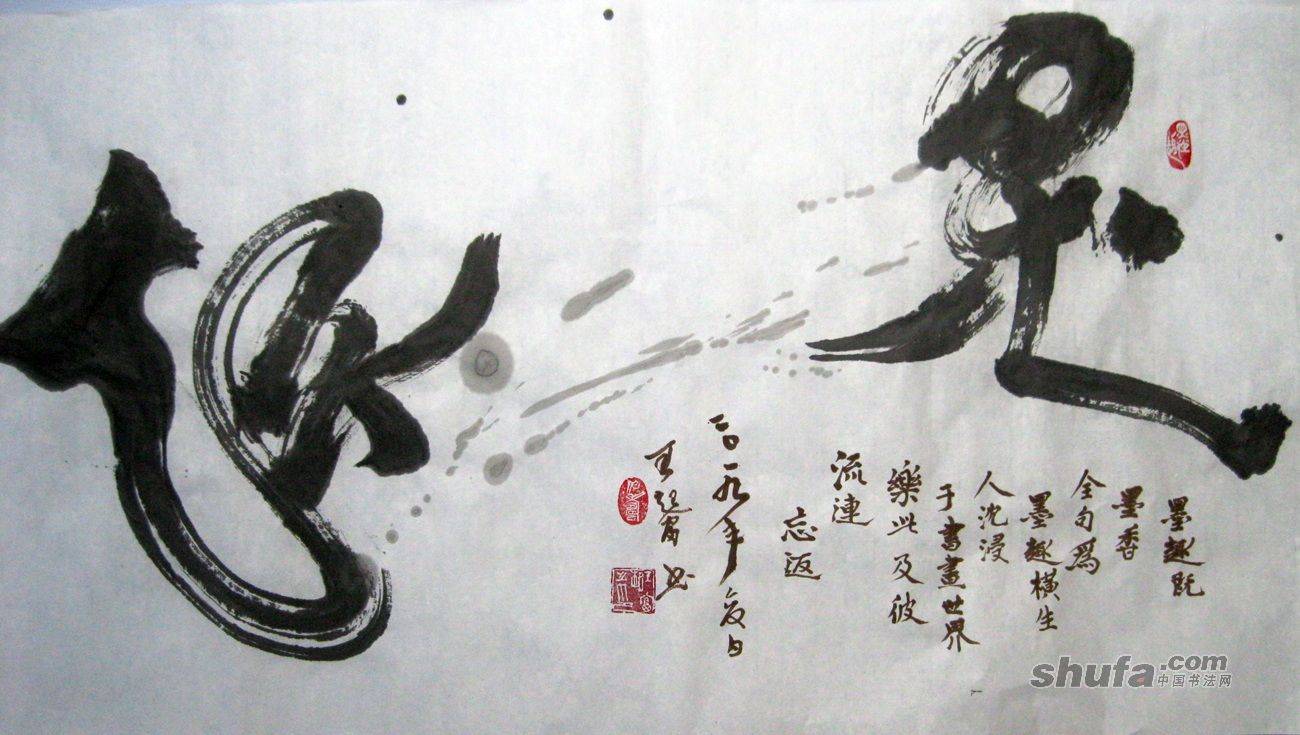 墨趣
墨趣既
墨香
全句為
墨趣橫生
人沈浸
于書畫世界
樂此及彼
流連
忘返
二〇一九年夏日
shufa.com
中国书法网